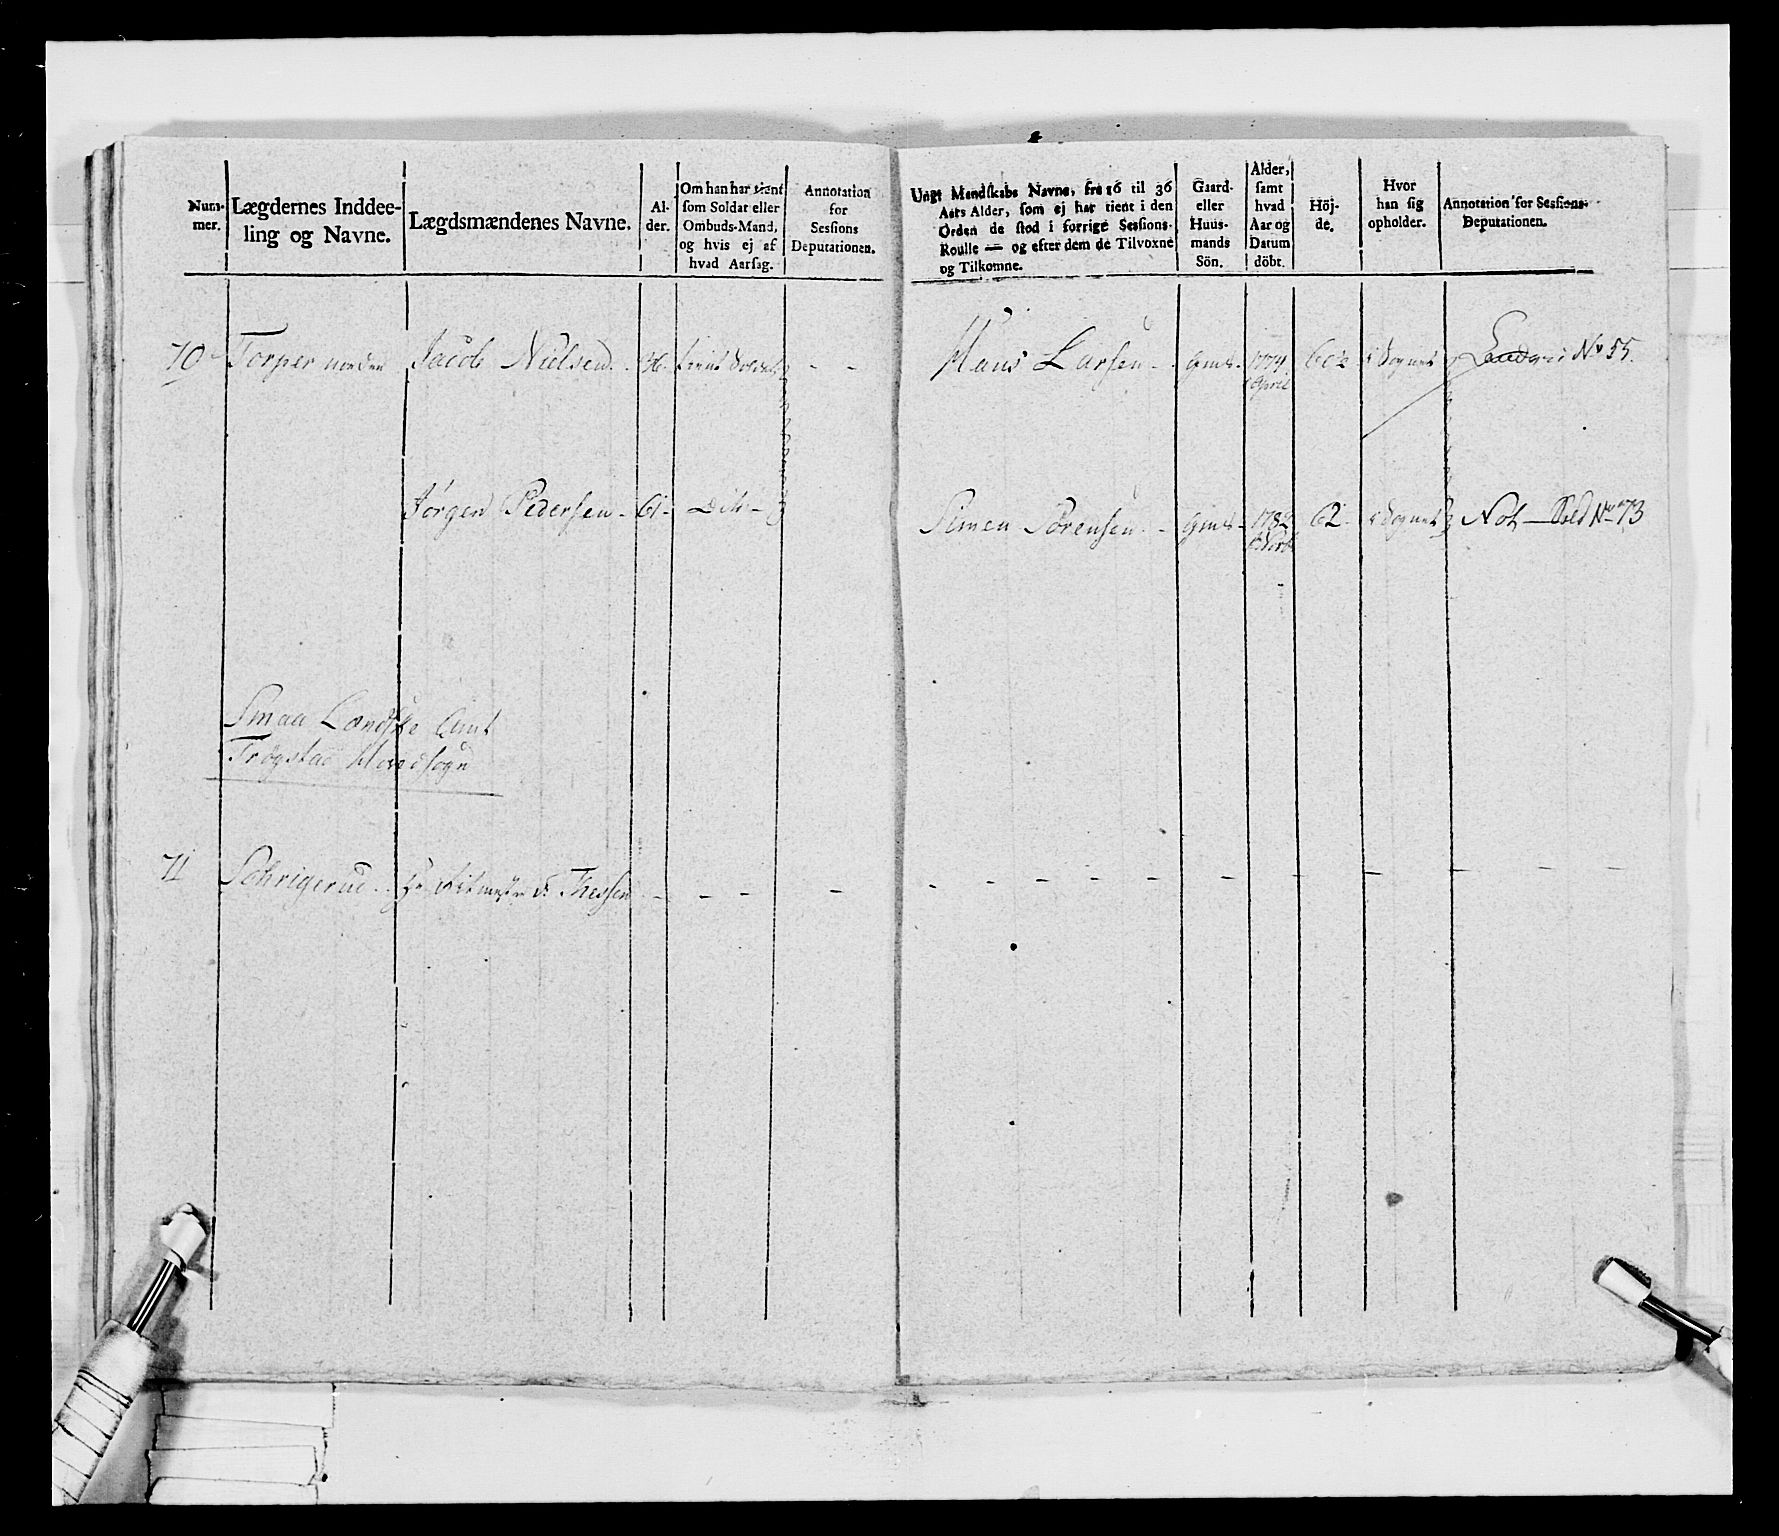 Num-
mer.
Lægdernes Inddee-
ling og Navne.
Lægdsmændenes Navne.
Al-
der.
Om han har tient
som Soldat eller
Ombuds-Mand,
og hvis ej af
hvad Aarsag.
Annotation
for
Sessions
Deputationen.
Ungt Mandskabs Navne, fra 16 til 36
Aars Alder, som ej har tient i den
Orden de stod i forrige Sessions-
Roulle — og efter dem de Tilvoxne
og Tilkomne.
Gaard-
eller
Huus-
mands
Sön.
Alder,
samt
hvad
Aar og
Datum
döbt.
Höj-
de.
Hvor
han sig
opholder.
Annotation for Sessions-
Deputationen.
70 Torper norden Jacob Nielsen - 36 - tient Soldat - - Hans Larsen - - Gmds - 1774 60½ i Sognet No 55.
April
Jørgen Pedersen - 61 - Dito - Simen Sørensen - - Gmds - 1782 62 - i Sognet Not - Sold No 73
Smaa Lændske Amt
Trøgstad Hovedsogn
71 Hr Ritmester d: Thessen - - - - - - - - - - - - - -